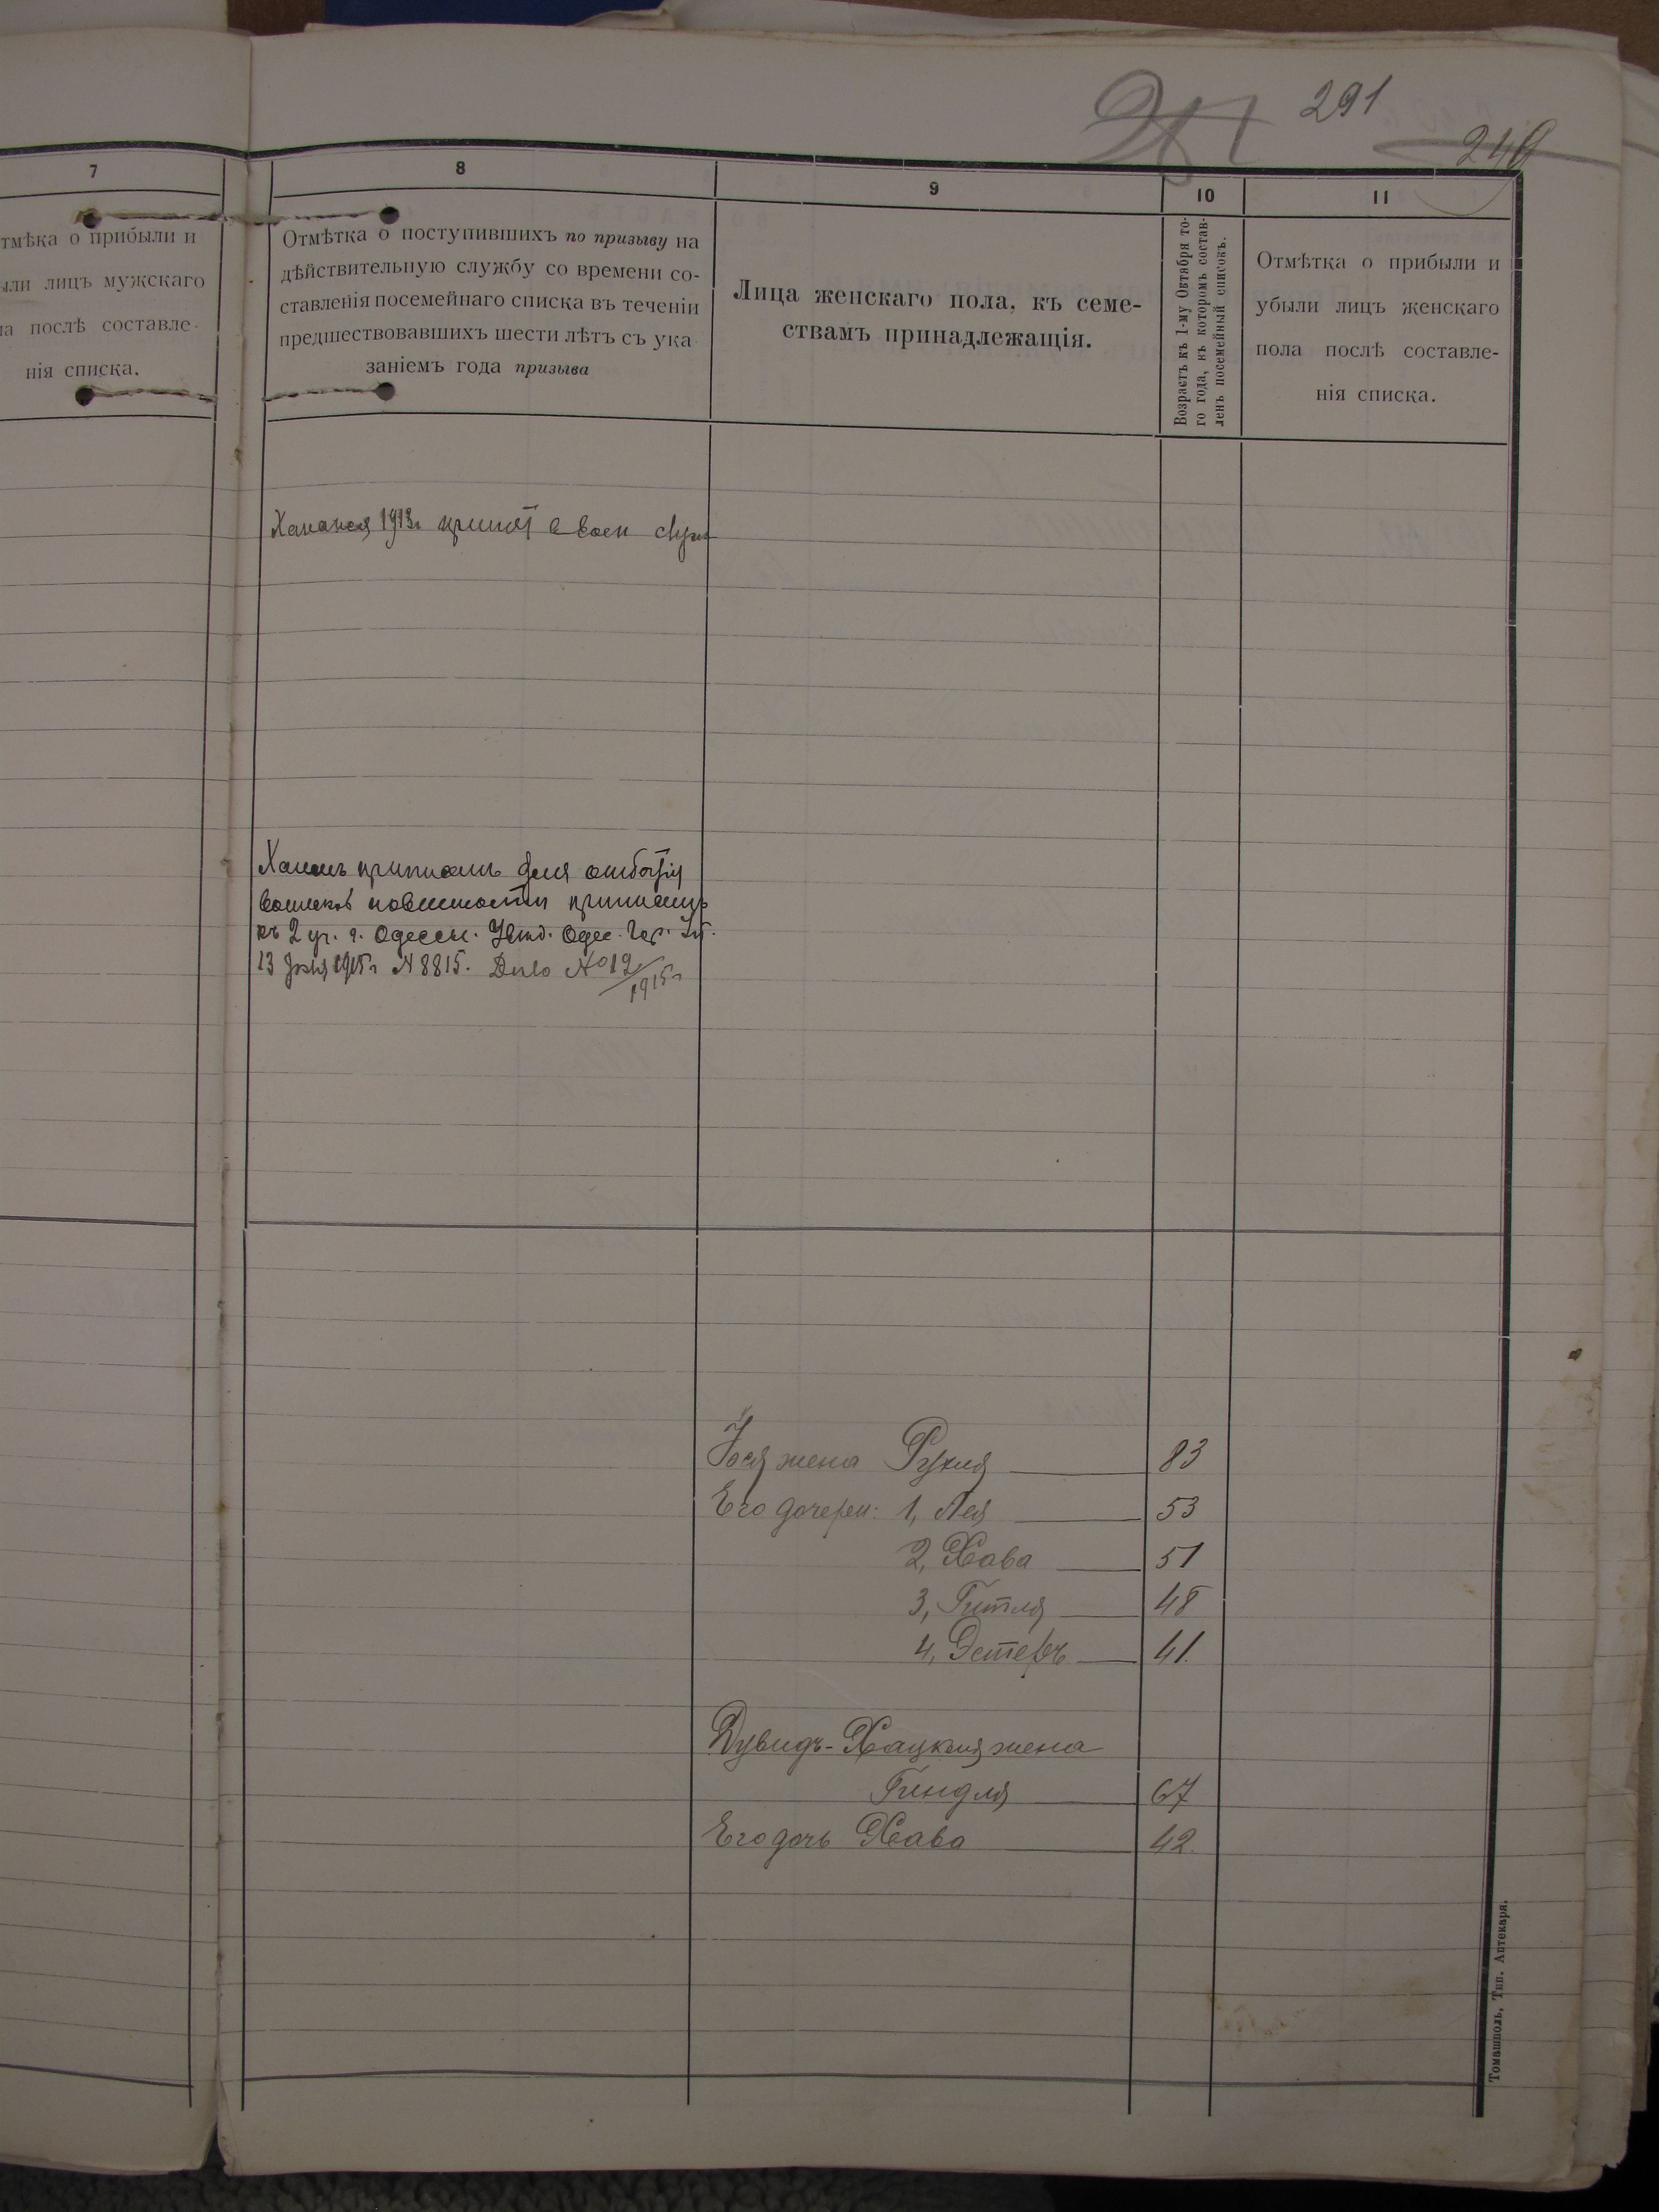 291
240
7
8
9
10
11
тмѣка о прибыли и
ыли лицъ мужскаго
ла послѣ составле-
нія списка.
Отмѣтка о поступившихъ по призыву на
дѣйствительную службу со времени со-
ставленія посемейнаго списка въ теченіи
предшествовавшихъ шести лѣтъ съ ука
заніемъ года призыва
Лица женскаго пола, къ семе-
ствамъ принадлежащія.
Возрастъ къ 1-му Октября то-
го года, къ которомъ состав-
ленъ посемейный списокъ.
Отмѣтка о прибыли и
убыли лицъ женскаго
пола послѣ составле-
нія списка.
1913г
приписанъ для
повинности
къ 2 уч. г. Одессы.
13 1915г N 8815. Дѣло №12/1915г
жена Рухля 83
Его дочери: 1, Лея 53
2, Хава 51
3, Гитля 48
4, Эстеръ 41.
Дувидъ-Хацкля жена
Гиндля 67
Его дочь Хава 42.
Томашполь, Тип. Аптекаря.